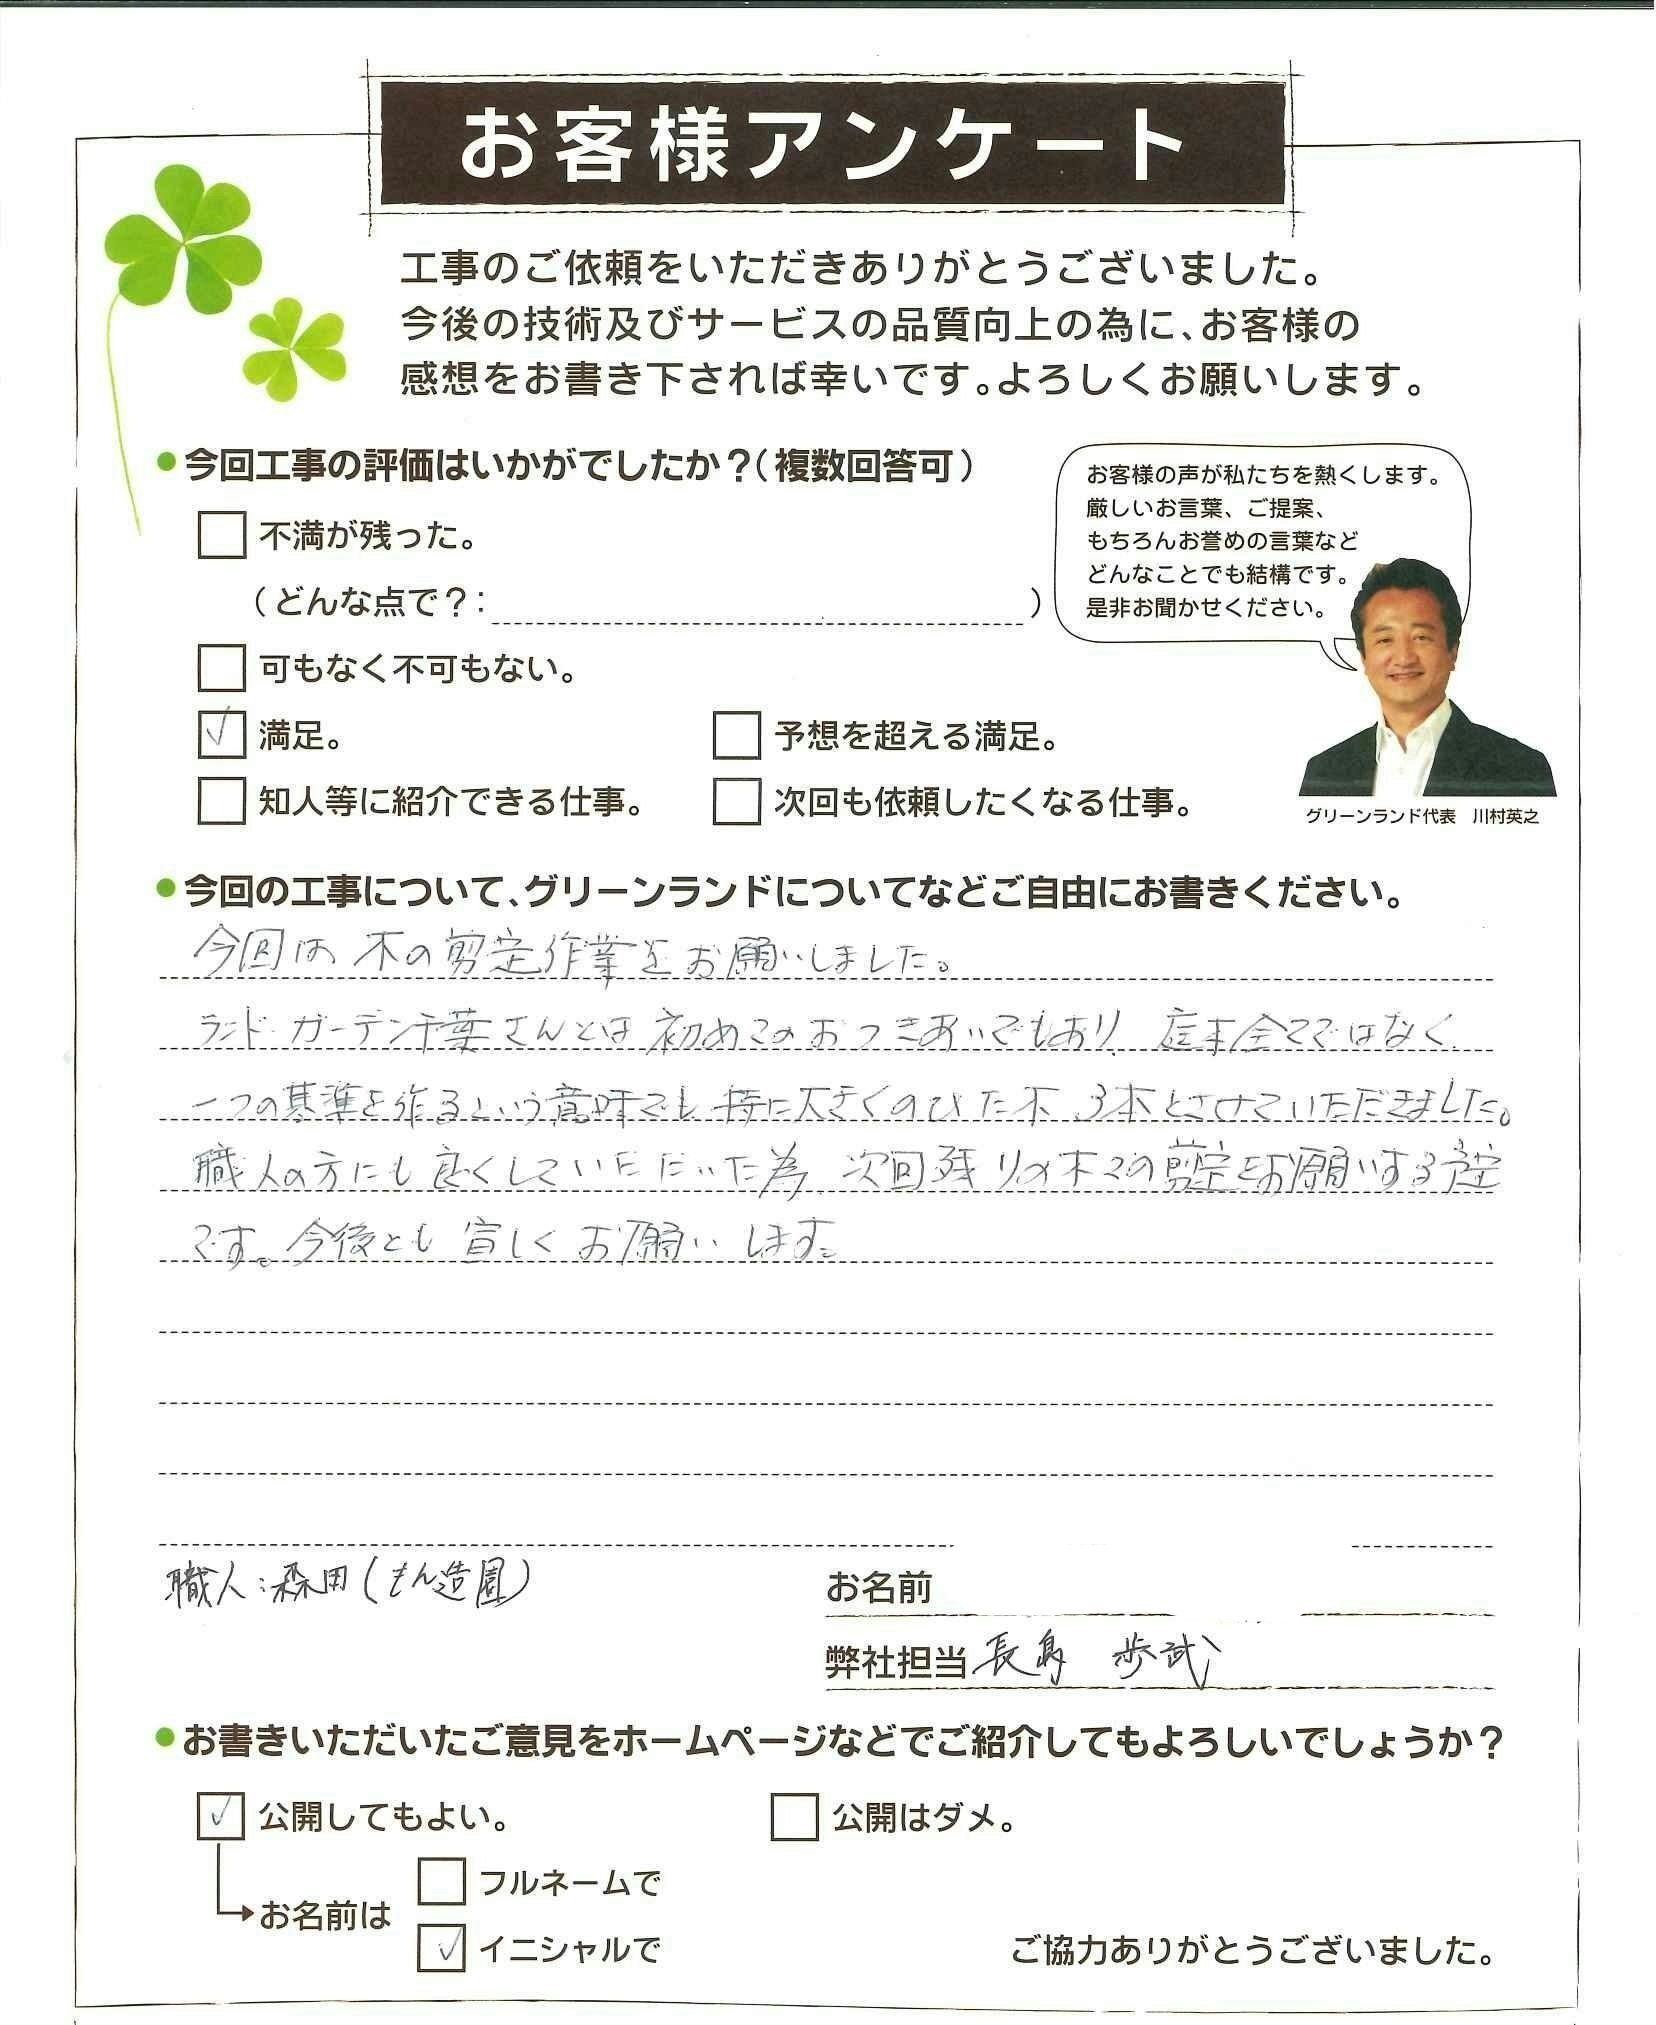 お客様アンケート
工事のご依頼をいただきありがとうございました。
今後の技術及びサービスの品質向上の為に、お客様の
感想をお書き下されば幸いです。よろしくお願いします。
●今回工事の評価はいかがでしたか？（複数回答可）
不満が残った。
（どんな点で？：　）
可もなく不可もない。
✓ 満足。
予想を超える満足。
知人等に紹介できる仕事。
次回も依頼したくなる仕事。
お客様の声が私たちを熱くします。
厳しいお言葉、ご提案、
もちろんお誉めの言葉など
どんなことでも結構です。
是非お聞かせください。
グリーンランド代表　川村英之
●今回の工事について、グリーンランドについてなどご自由にお書きください。
今回は、木の剪定作業をお願いしました。
ランドガーデン千葉さんとは初めてのおつきあいでもあり、庭木全てではなく
一つの基準を作るという意味でも、特に大きくのびた木、3本とさせていただきました。
職人の方にも良くしていただいた為、次回残りの木々の剪定をお願いする予定
です。今後とも宜しくお願いします。
職人：森田（もん造園）
お名前
弊社担当 長島 歩武
●お書きいただいたご意見をホームページなどでご紹介してもよろしいでしょうか？
✓ 公開してもよい。
公開はダメ。
お名前は
フルネームで
✓ イニシャルで
ご協力ありがとうございました。